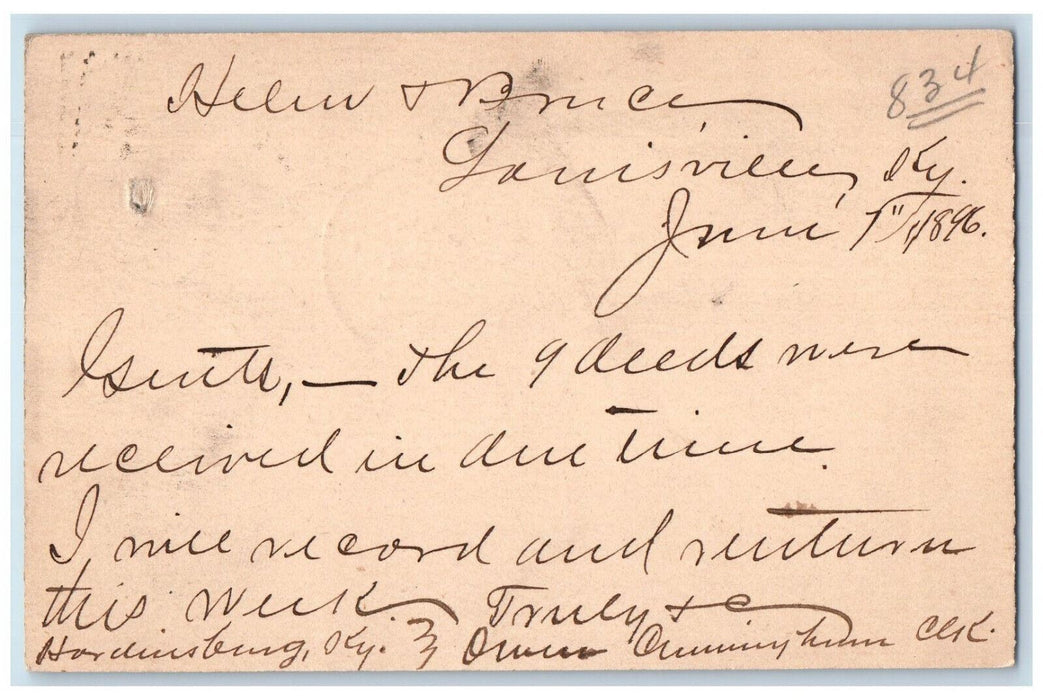 Helm & Bruce
834
Louisville, Ky.
June 1"/1896.
Gents, — The 9 deeds were
received in due time.
I will record and return
this week. Truly &c
Hardinsburg, Ky. } Owen Cunningham Clk.